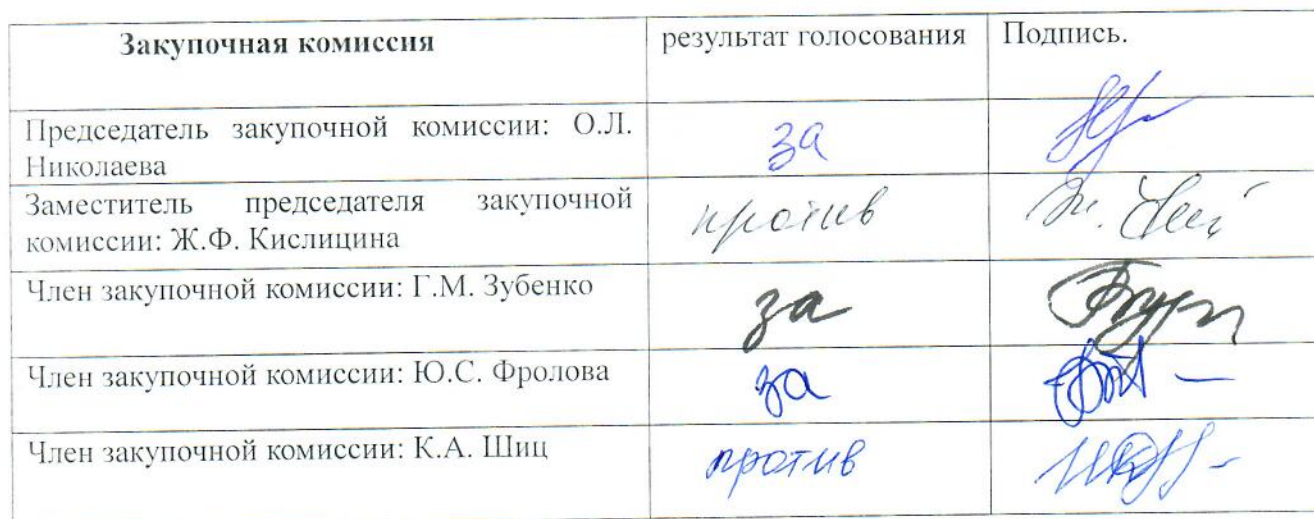 Закупочная комиссия
результат голосования
Подпись.
Председатель закупочной комиссии: О.Л.
Николаева
за
Заместитель председателя закупочной
комиссии: Ж.Ф. Кислицина
против
Член закупочной комиссии: Г.М. Зубенко
за
Член закупочной комиссии: Ю.С. Фролова
за
Член закупочной комиссии: К.А. Шиц
против